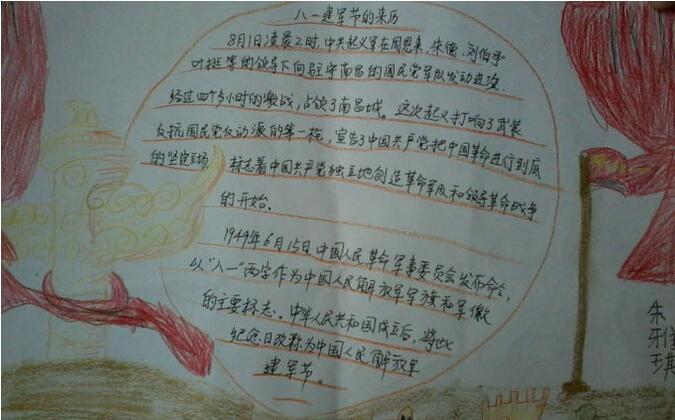 八一建军节的来历
8月1日凌晨2时,中共起义军在周恩来、朱德、刘伯承
叶挺等的领导下向驻守南昌的国民党军队发动进攻.
经过四个多小时的激战,占领了南昌城。这次起义打响了武装
反抗国民党反动派的第一枪,宣告了中国共产党把中国革命进行到底
的坚定立场. 标志着中国共产党独立地创造革命军队和领导革命战争
的开始。
1949年6月15日中国人民革命军事委员会发布命令,
以“八一”两字作为中国人民解放军军旗和军徽
的主要标志。中华人民共和国成立后,将此
纪念日改称为中国人民解放军
建军节。
朱
雅
琪